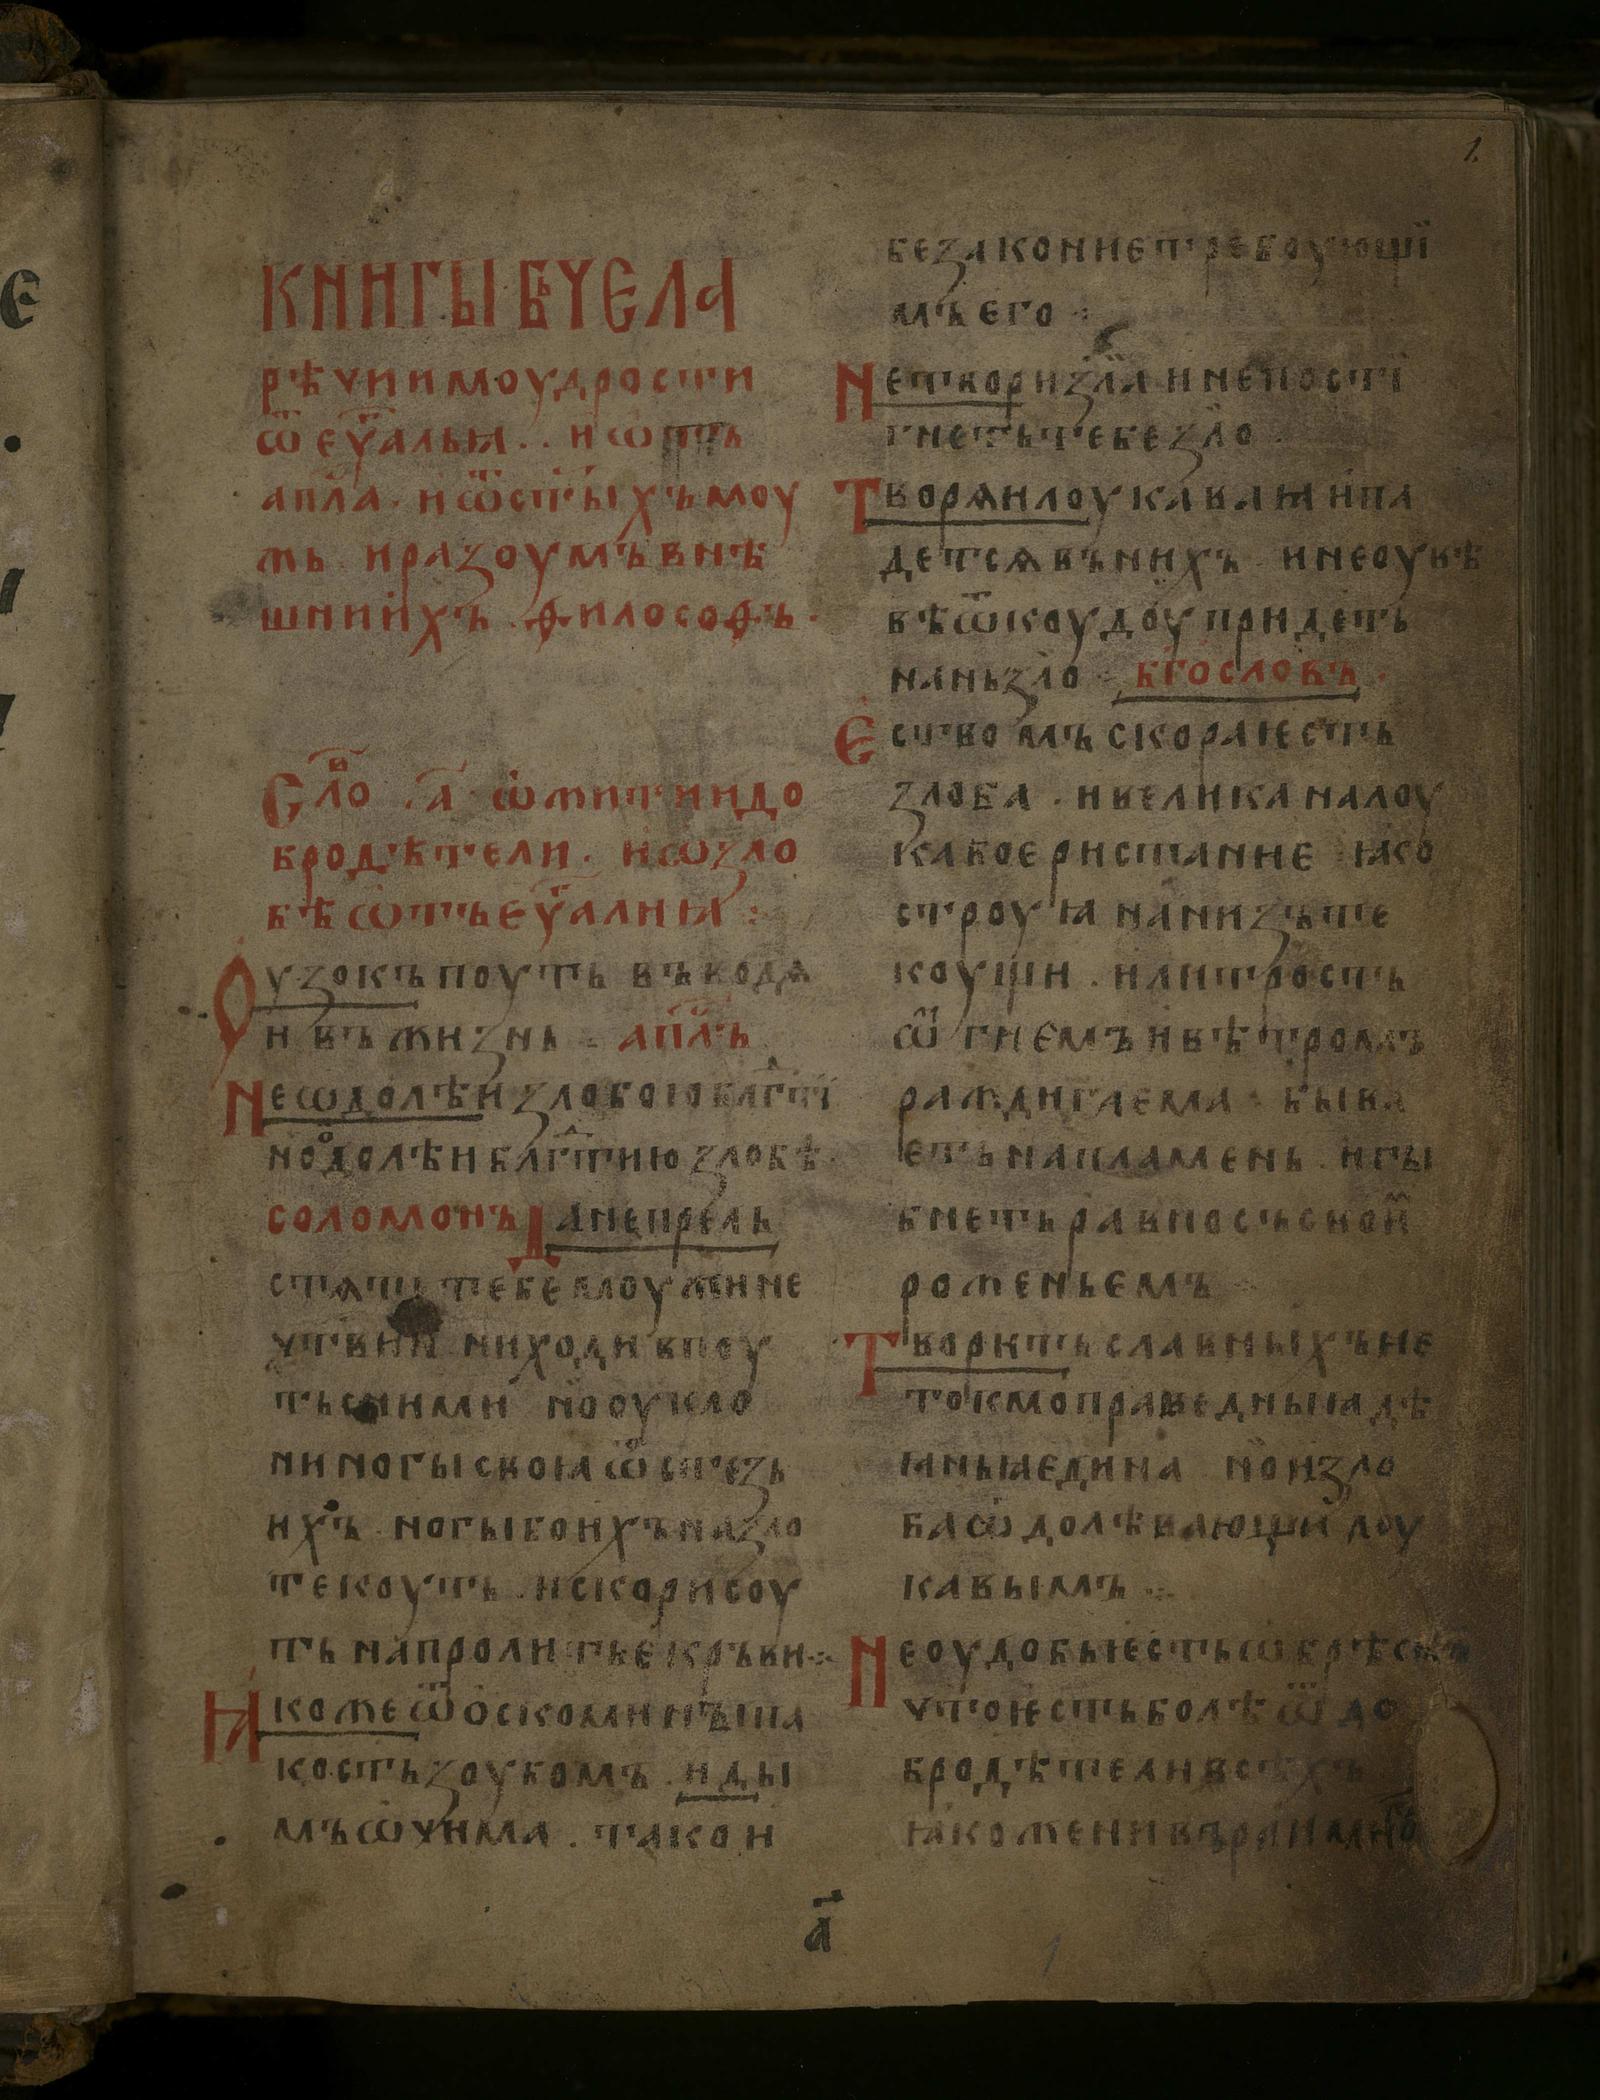 КНИГЫ БЪЧЕЛА
рѣчи и моудрости
ѿ еѵⷢ҇альꙗ . . и ѿтъ
апⷭ҇ла . и ѿ ст҃ыхъ моу
жь и разоумъ внѣ
шниихъ философъ ·
Слⷪ҇во .а҃. ѡ житии и до
бродѣтели . и ѡ зло
бѣ ѿтъ еѵⷢ҇алиꙗ :
Оузокъ поуть въводѧ
и въ жизнь · апⷭ҇лъ
Не ѡдолѣи злобою блгⷣтї
но ѡдолѣи блгⷣтию злобѣ ·
соломонъ Да не прель
стѧть тебе моужи не
чтвии ни ходи в поу
ть с ними но оукло
ни ногы своꙗ ѿ стезь
ихъ · ногы бо ихъ на зло
текоуть . и скори соу
ть на пролитье кръви ·:·
Ꙗкоже ѿ оскоминъ па
кость зоубомъ . и ды
мъ ѡчима . тако и
безаконие требоующї
мъ его :
Не твори зла и не пости
гнеть тебе зло .
Творѧи лоукаваꙗ и па
детсѧ въ нихъ и не оувѣ
вѣ ѿкоудоу придеть
на нь зло · бг҃ословъ ·
Єством скораꙗ есть
злоба . и велика на лоу
кавое ристание ꙗко
строуꙗ на низъ те
коущи . или трость
ѡгнемъ и вѣтромъ
раждигаема быва
еть на пламень . и гы
бнеть равно съ своиⷨ
роженьемъ
Творить славныхъ не
токмо праведныꙗ дѣ
ꙗньꙗ едина но и зло
ба ѡдолѣвающи лоу
кавымъ ·:
Не оудобь ѥсть ѡбрѣсти
что ѥсть болѣ ѿ до
бродѣтели всѣхъ
ꙗкоже ни въ раи мно
а҃
1.
1